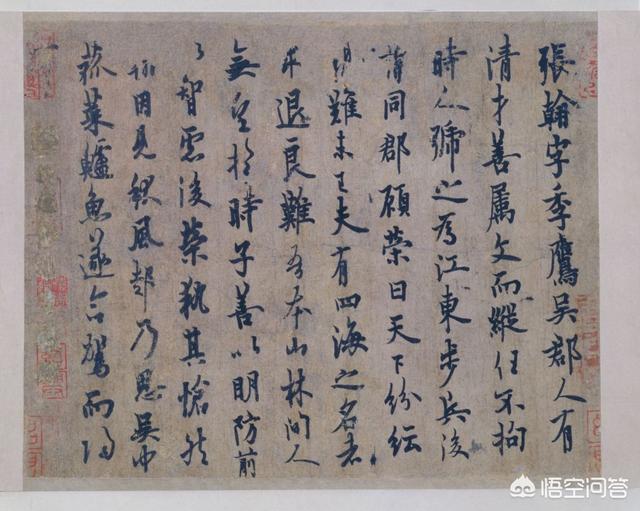 張翰字季鷹吳郡人有
清才善屬文而縱任不拘
時人號之為江東步兵後
謂同郡顧榮曰天下紛紜
難未已夫有四海之名者
求退良難吾本山林間人
無望於時子善以明防前
以智慮後榮執其愴然
翰因見秋風起乃思吳中
菰菜鱸魚遂命駕而歸
悟空问答